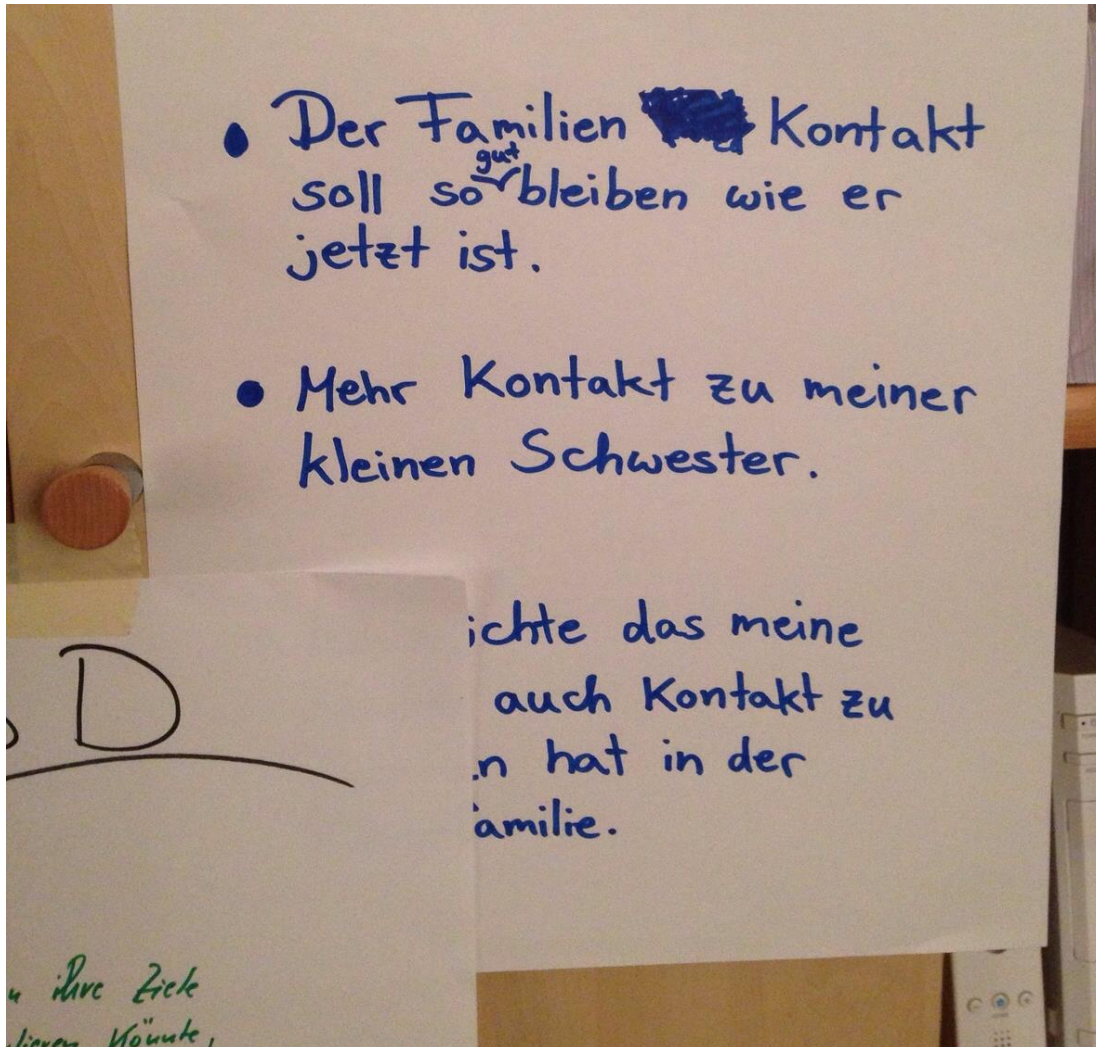 • Der Familien Kontakt
soll so gut bleiben wie er
jetzt ist.
• Mehr Kontakt zu meiner
kleinen Schwester.
ichte das meine
auch Kontakt zu
n hat in der
amilie.
D
ihre Ziele
könnte,